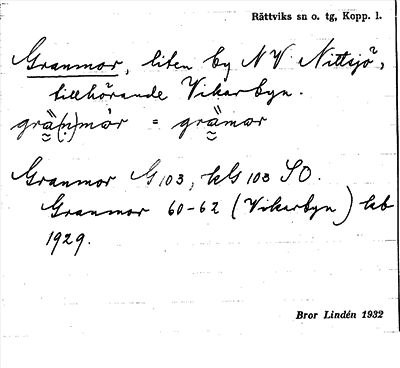 Rättviks sn o. tg, Kopp. l.
Granmor, liten by NV Nittsjö,
tillhörande Vikarbyn.
grä(n)mår = grämar
Granmor G 103, kG 103 SO.
Granmor 60-62 (Vikarbyn) kb
1929.
Bror Lindén 1932